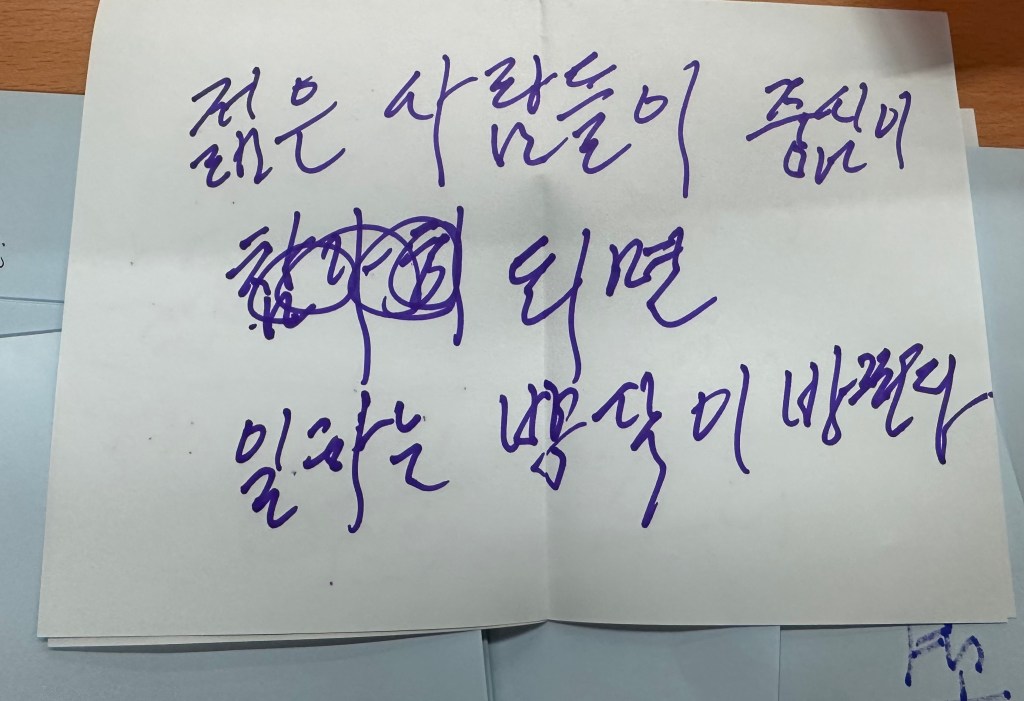 젊은 사람들이 중심이
되면
일하는 방식이 바뀐다